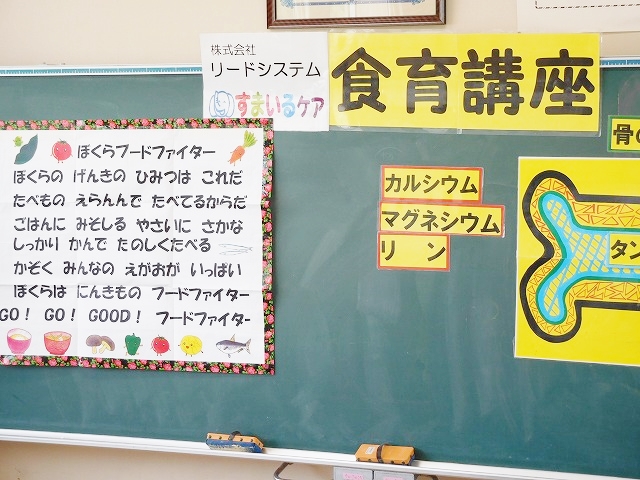 株式会社
リードシステム
すまいるケア
食育講座
ぼくらフードファイター
ぼくらの げんきの ひみつは これだ
たべもの えらんんで たべてるからだ
ごはんに みそしる やさいに さかな
しっかり かんで たのしくたべる
かぞく みんなの えがおが いっぱい
ぼくらは にんきもの フードファイター
GO! GO! GOOD! フードファイター
カルシウム
マグネシウム
リン
骨の
タン